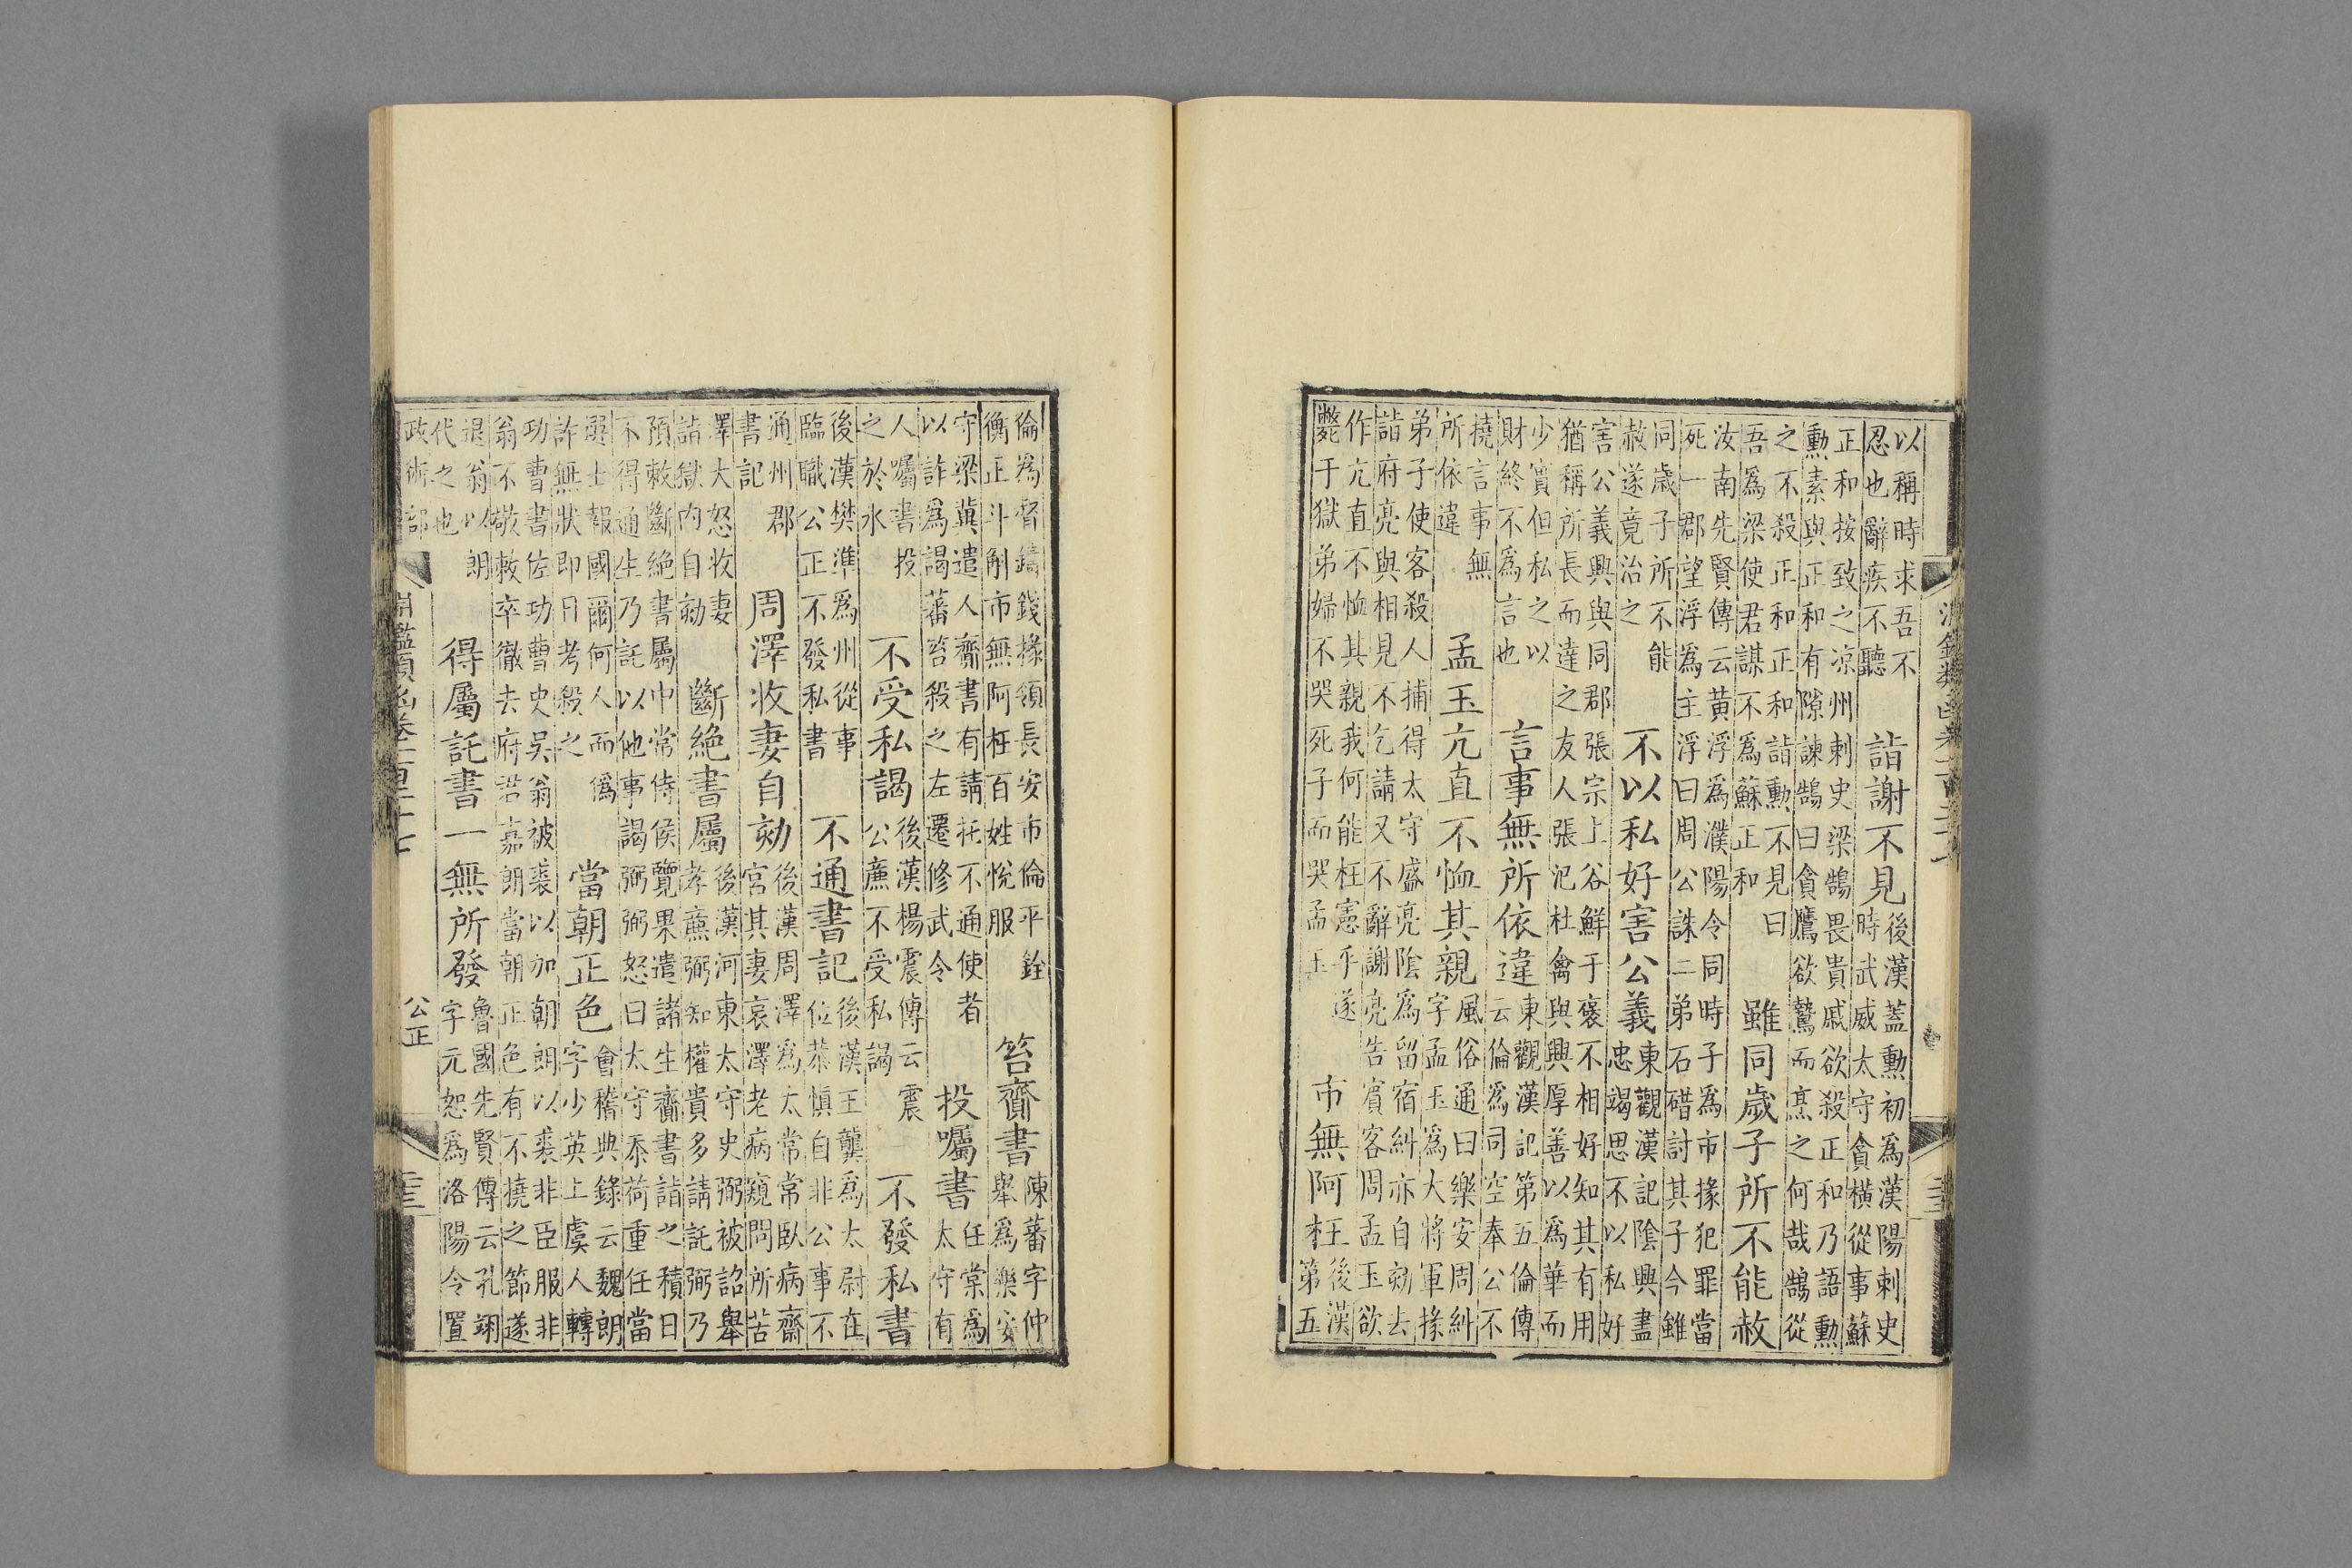 以稱時求吾不
忍也辭疾不聽
詣謝不見
後漢蓋勳初為漢陽刺史
時武威太守貪橫從事蘇
正和按致之凉州刺史梁鵠畏貴戚欲殺正和乃語勳
勳素與正和有隙諫鵠曰貪鷹欲鷙而烹之何哉鵠從
之不殺正和正和詣勳不見曰
吾為梁使君謀不為蘇正和
雖同歲子所不能赦
汝南先賢傳云黃浮為濮陽令同時子為市掾犯罪當
死一郡望浮為主浮曰周公誅二弟石碏討其子今雖
同歲子所不能
赦遂竟治之
不以私好害公義
東觀漢記陰興盡
忠竭思不以私好
害公義興與同郡張宗上谷鮮于裒不相好知其有用
猶稱所長而達之友人張汜杜禽與興厚善以為華而
少實但私之以
財終不為言也
言事無所依違
東觀漢記第五倫傳
云倫為司空奉公不
撓言事無
所依違
孟玉亢直不恤其親
風俗通曰樂安周糾
字孟玉為大將軍掾
弟子使客殺人捕得太守盛亮陰為留宿糾亦自劾去
詣府亮與相見不乞請又不辭謝亮告賓客周孟玉欲
作亢直不恤其親我何能枉憲乎遂
斃于獄弟婦不哭死子而哭孟玉
市無阿枉
後漢
第五
倫為督鑄錢掾領長安市倫平銓
衡正斗斛市無阿枉百姓悅服
笞齎書
陳蕃字仲
舉為樂安
守梁冀遣人齎書有請托不通使者
以詐為謁蕃笞殺之左遷修武令
投囑書
任棠為
太守有
人囑書投
之於水
不受私謁
後漢楊震傳云震
公廉不受私謁
不發私書
後漢樊準為州從事
臨職公正不發私書
不通書記
後漢王龔為太尉在
位恭慎自非公事不
通州郡
書記
周澤收妻自劾
後漢周澤為太常常臥病齋
宮其妻哀澤老病窺問所苦
澤大怒收妻
詣獄內自劾
斷絕書屬
後漢河東太守史弼被詔舉
孝廉弼知權貴多請託弼乃
預敕斷絕書屬中常侍侯覽果遣諸生齎書詣之積日
不得通生乃託以他事謁弼弼怒曰太守忝荷重任當
選士報國爾何人而偽
詐無狀即日考殺之
當朝正色
會稽典錄云魏朗
字少英上虞人轉
功曹書佐功曹史吳翁被裘以加朝朗以裘非臣服非
翁不敬敕卒徹去府君嘉朗當朝正色有不撓之節遂
退翁以朗
代之也
得屬託書一無所發
魯國先賢傳云孔翊
字元恕為洛陽令置
政術部
公正